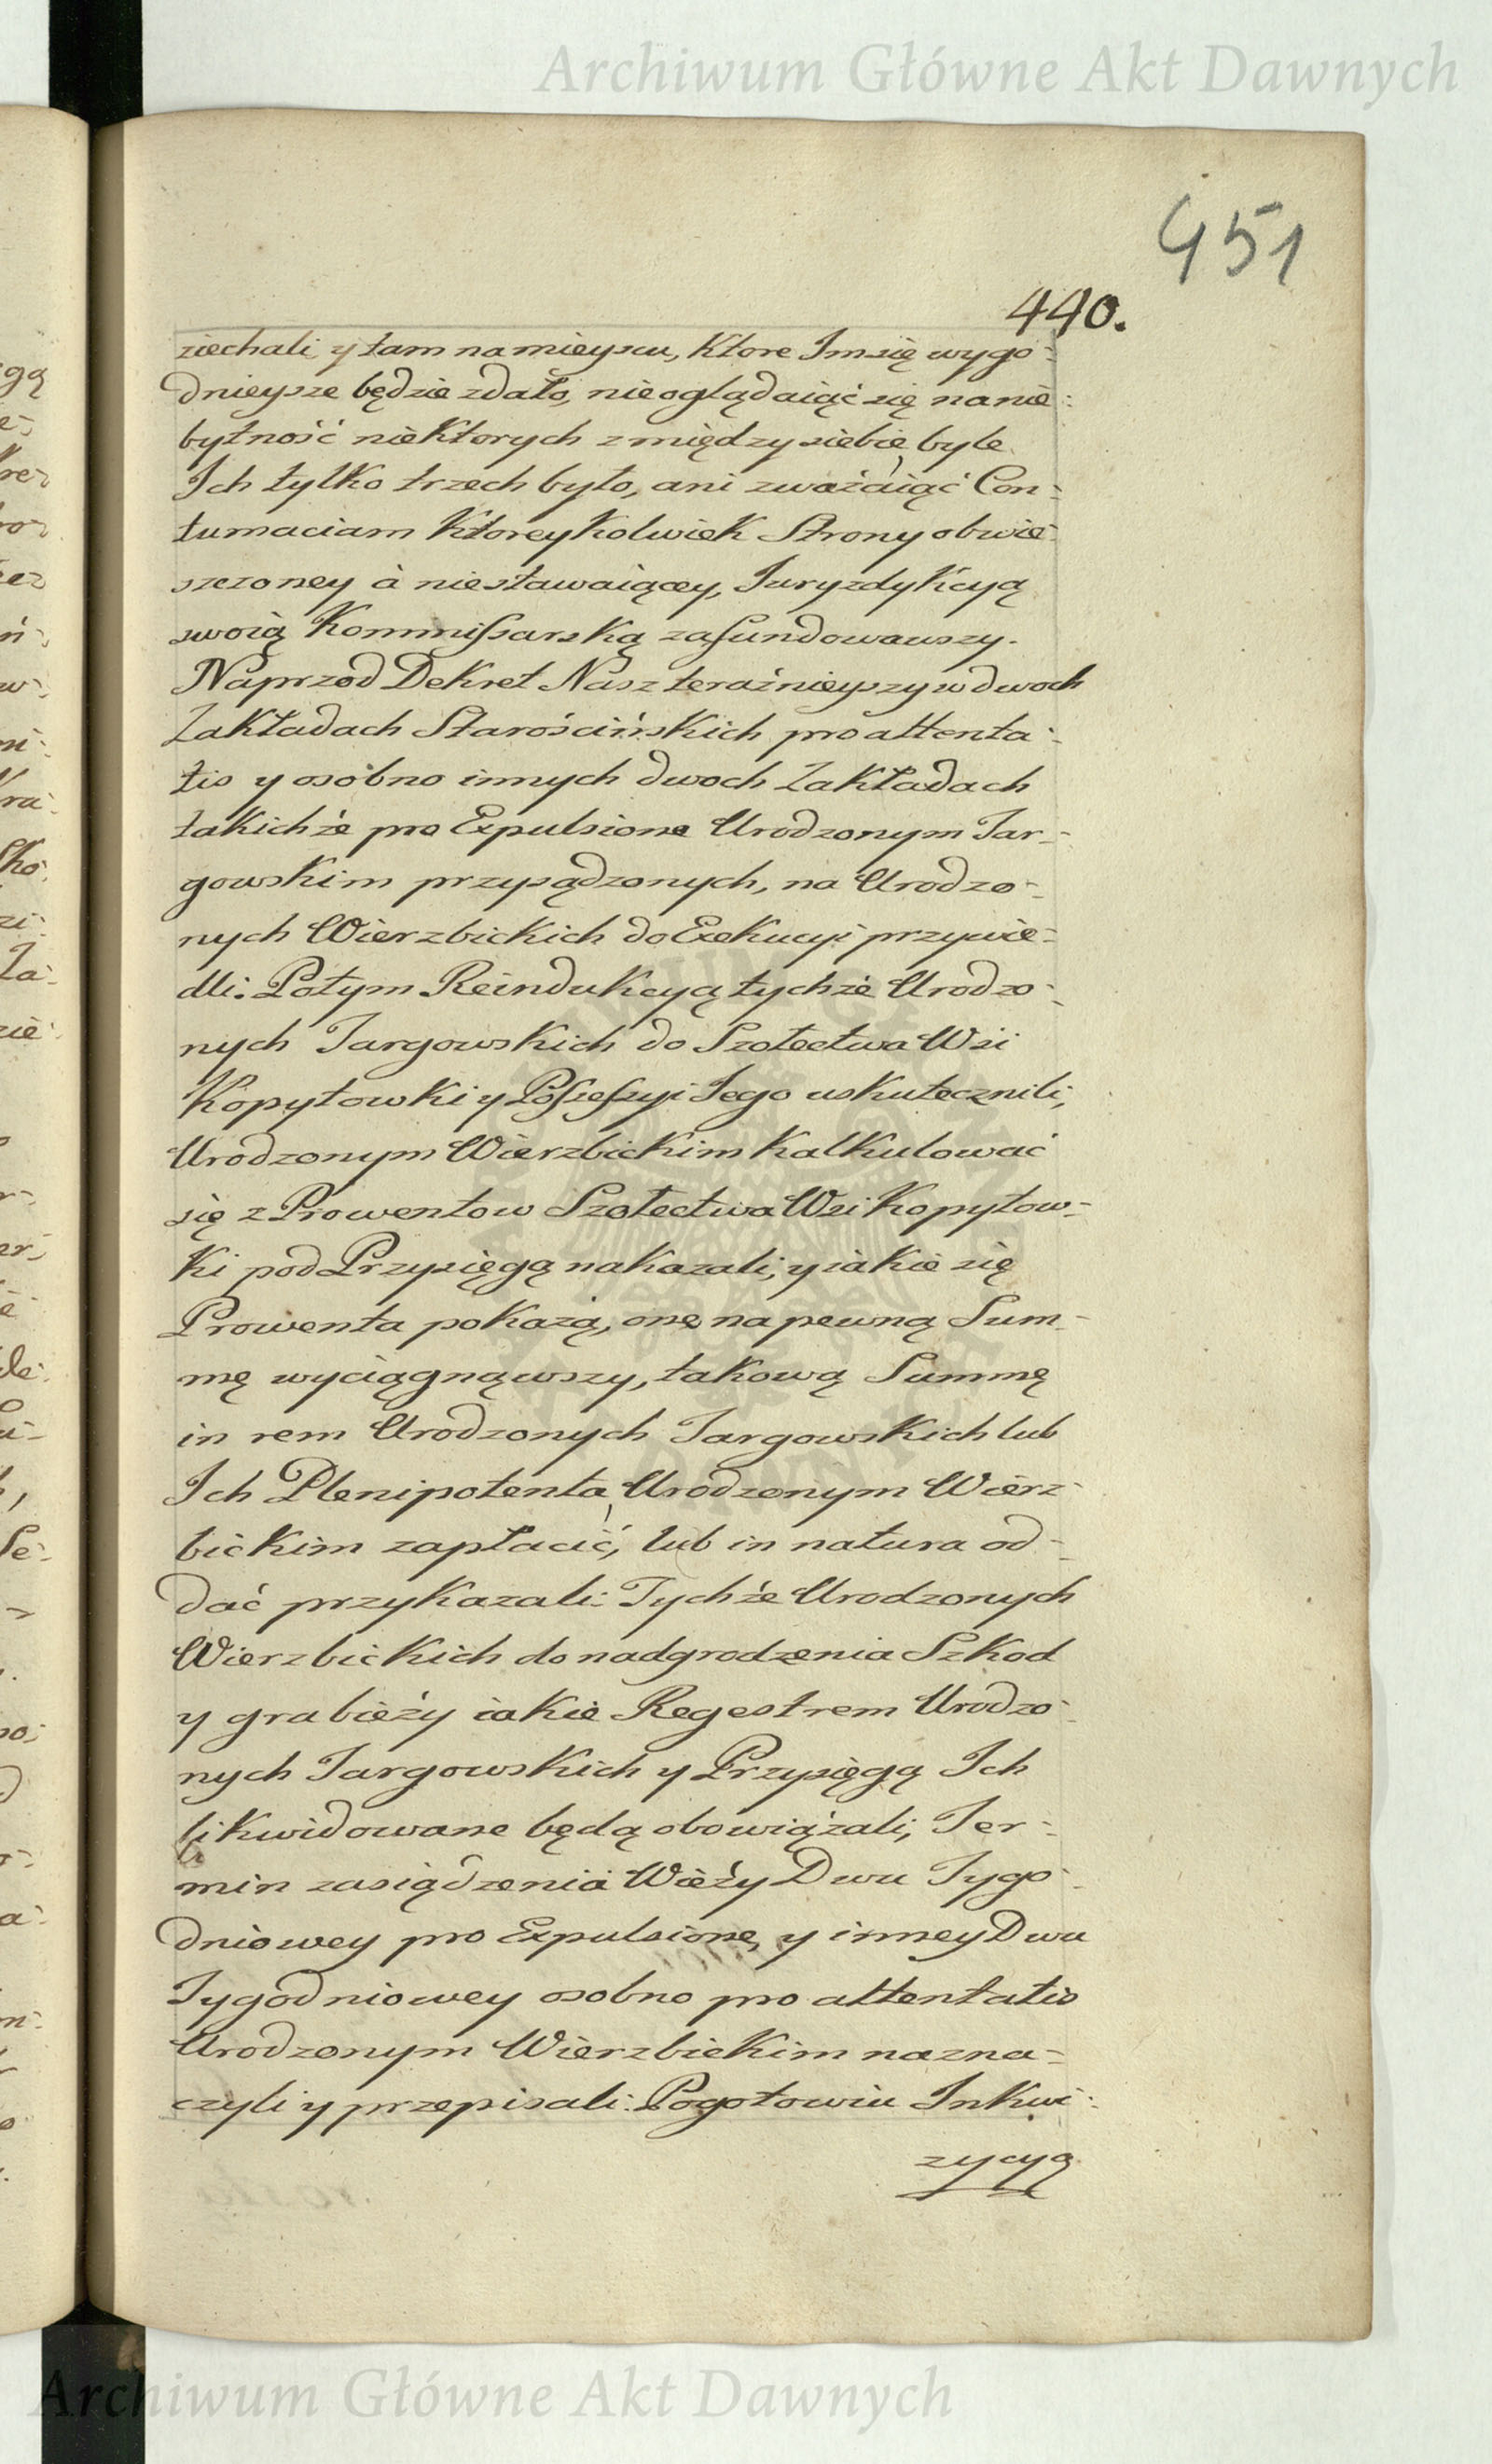 Archiwum Główne Akt Dawnych
451
440.
ziechali y tam na mieyscu, Ktore Im się wygo-
dnieysze będzie zdało, nie oglądaiąć się na nie-
bytność niektorych z między siebie, byle
Ich tylko trzech było, ani zważaiąć Con-
tumaciam Ktorey Kolwiek Strony obwie-
szczoney à niestawaiącey, Juryzdykcyą
swoią Kommissarską zafundowawszy.
Naprzod Dekret Nasz teraźnieyszy w dwoch
Zakładach Starościńskich pro attenta-
tis y osobno innych dwoch Zakładach
takichże pro Expulsione Urodzonym Tar-
gowskim przysądzonych, na Urodzo-
nych Wierzbickich do Exekucyi przywie-
dli. Potym Reindukcyą tychże Urodzo-
nych Targowskich do Szołectwa Wsi
Kopytowki y Possessyi Iego uskutecznili,
Urodzonym Wierzbickim Kalkulować
się z Prowentow Szołectwa Wsi Kopytow-
ki pod Przysięgą nakazali, y iakie się
Prowenta pokażą, one na pewną Sum-
mę wyciągnąwszy, takową Summę
in rem Urodzonych Targowskich lub
Ich Plenipotenta, Urodzonym Wierz-
bickim zapłacić, lub in natura od-
dać przykazali: Tychże Urodzonych
Wierzbickich do nadgrodzenia Szkod
y grabieży iakie Regestrem Urodzo-
nych Targowskich y Przysięgą Ich
likwidowane będą obowiązali, Ter-
min zasiądzenia Wieży Dwu Tygo-
dniowey pro Expulsione, y inney Dwu
Tygodniowey osobno pro attentatis
Urodzonym Wierzbickim nazna-
czyli y przepisali: Pogotowiu Inkwi-
zycyą
Archiwum Główne Akt Dawnych